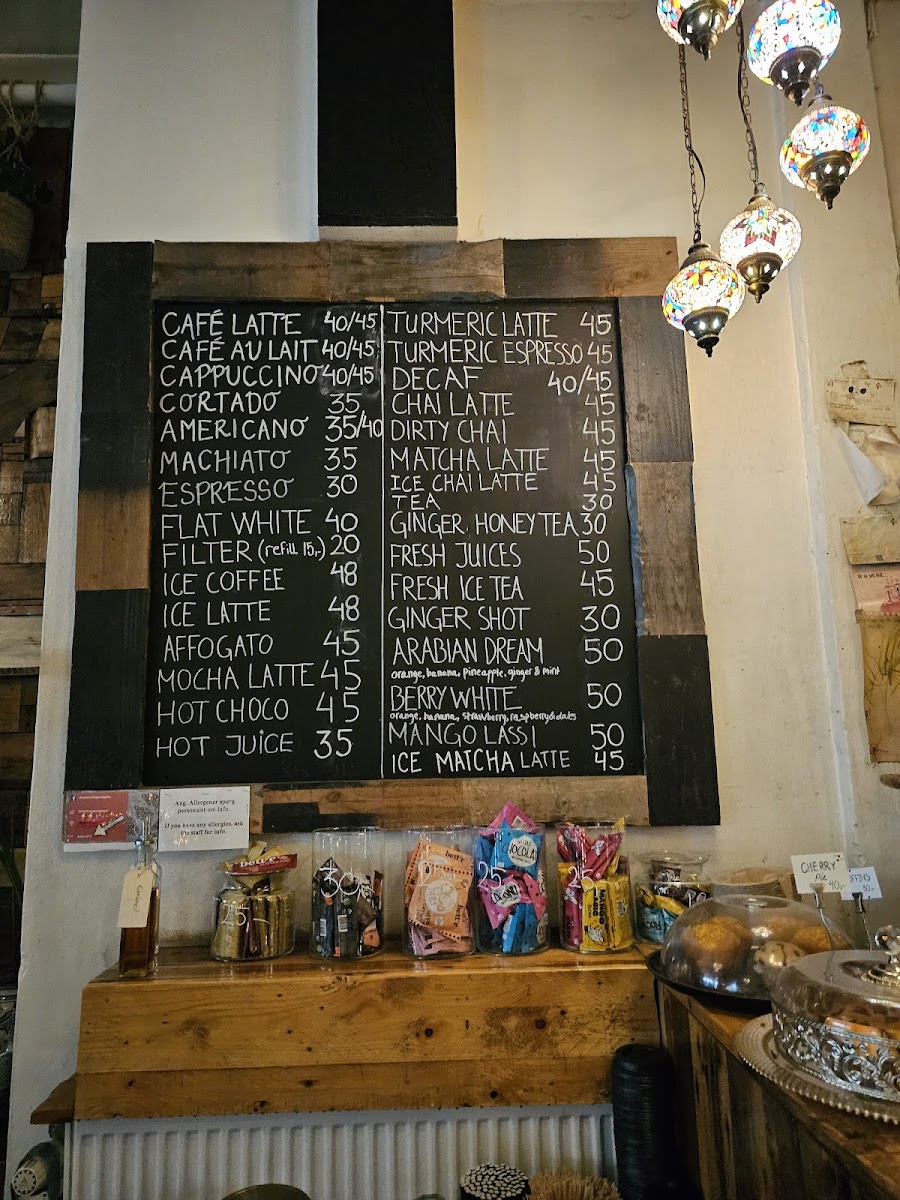 CAFÉ LATTE 40/45
CAFÉ AU LAIT 40/45
CAPPUCCINO 40/45
CORTADO 35
AMERICANO 35/40
MACHIATO 35
ESPRESSO 30
FLAT WHITE 40
FILTER (refill 15,-) 20
ICE COFFEE 48
ICE LATTE 48
AFFOGATO 45
MOCHA LATTE 45
HOT CHOCO 45
HOT JUICE 35
TURMERIC LATTE 45
TURMERIC ESPRESSO 45
DECAF 40/45
CHAI LATTE 45
DIRTY CHAI 45
MATCHA LATTE 45
ICE CHAI LATTE 45
TEA 30
GINGER HONEY TEA 30
FRESH JUICES 50
FRESH ICE TEA 45
GINGER SHOT 30
ARABIAN DREAM 50
orange, banana, pineapple, ginger & mint
BERRY WHITE 50
orange, banana, strawberry, raspberry & dates
MANGO LASSI 50
ICE MATCHA LATTE 45
Ang. Allergener spørg
personalet om info.
If you have any allergies, ask
the staff for info.
Caramel
25,-
30,-
25
25
CHERRY
Pie 40,-
30,-